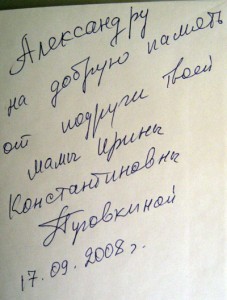 Александру
на добрую память
от подруги твоей
мамы Ирины
Константиновны
Пуговкиной
17.09.2008г.